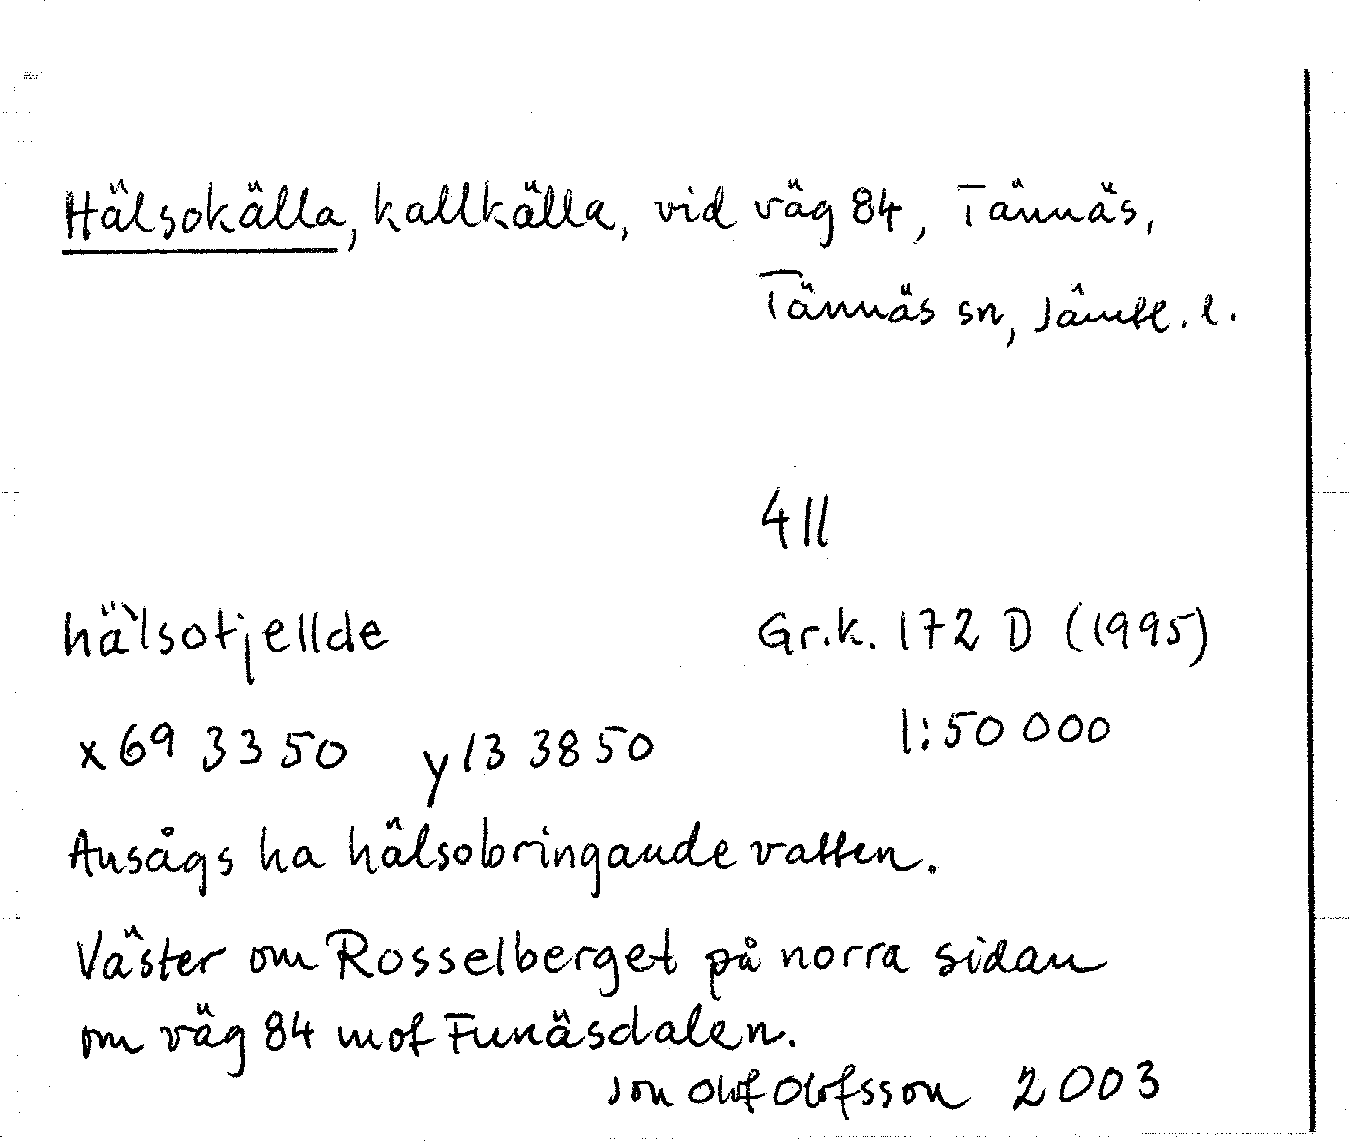 Hälsokälla, kallkälla, vid väg 84, Tännäs,
Tännäs sn, Jämtl. l.
411
hä̀lsotjellde
Gr.k. 172 D (1995)
x 69 3350 y 13 3850
1:50 000
Ansågs ha hälsobringande vatten.
Väster om Rosselberget på norra sidan
om väg 84 mot Funäsdalen.
Jon Olof Olofsson 2003